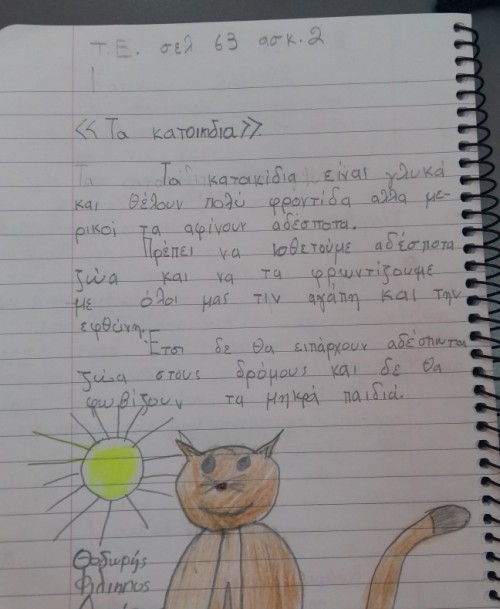 Τ.Ε. σελ 63 ασκ. 2
<< Τα κατοικιδια >>
Τα κατακίδια είναι γλυκά
και θέλουν πολύ φροντίδα αλλα με-
ρικοί τα αφίνουν αδέσποτα.
Πρέπει να ιοθετούμε αδέσποτα
ζώα και να τα φρωντίζουμε
με όλοι μας τιν αγάπη και την
εφθύνη.
Έτσι δε θα ειπάρχουν αδέσποτα
ζώα στους δρόμους και δε θα
φωβίζουν τα μηκρά παιδιά.
Θοδωρής
Φίλιππος